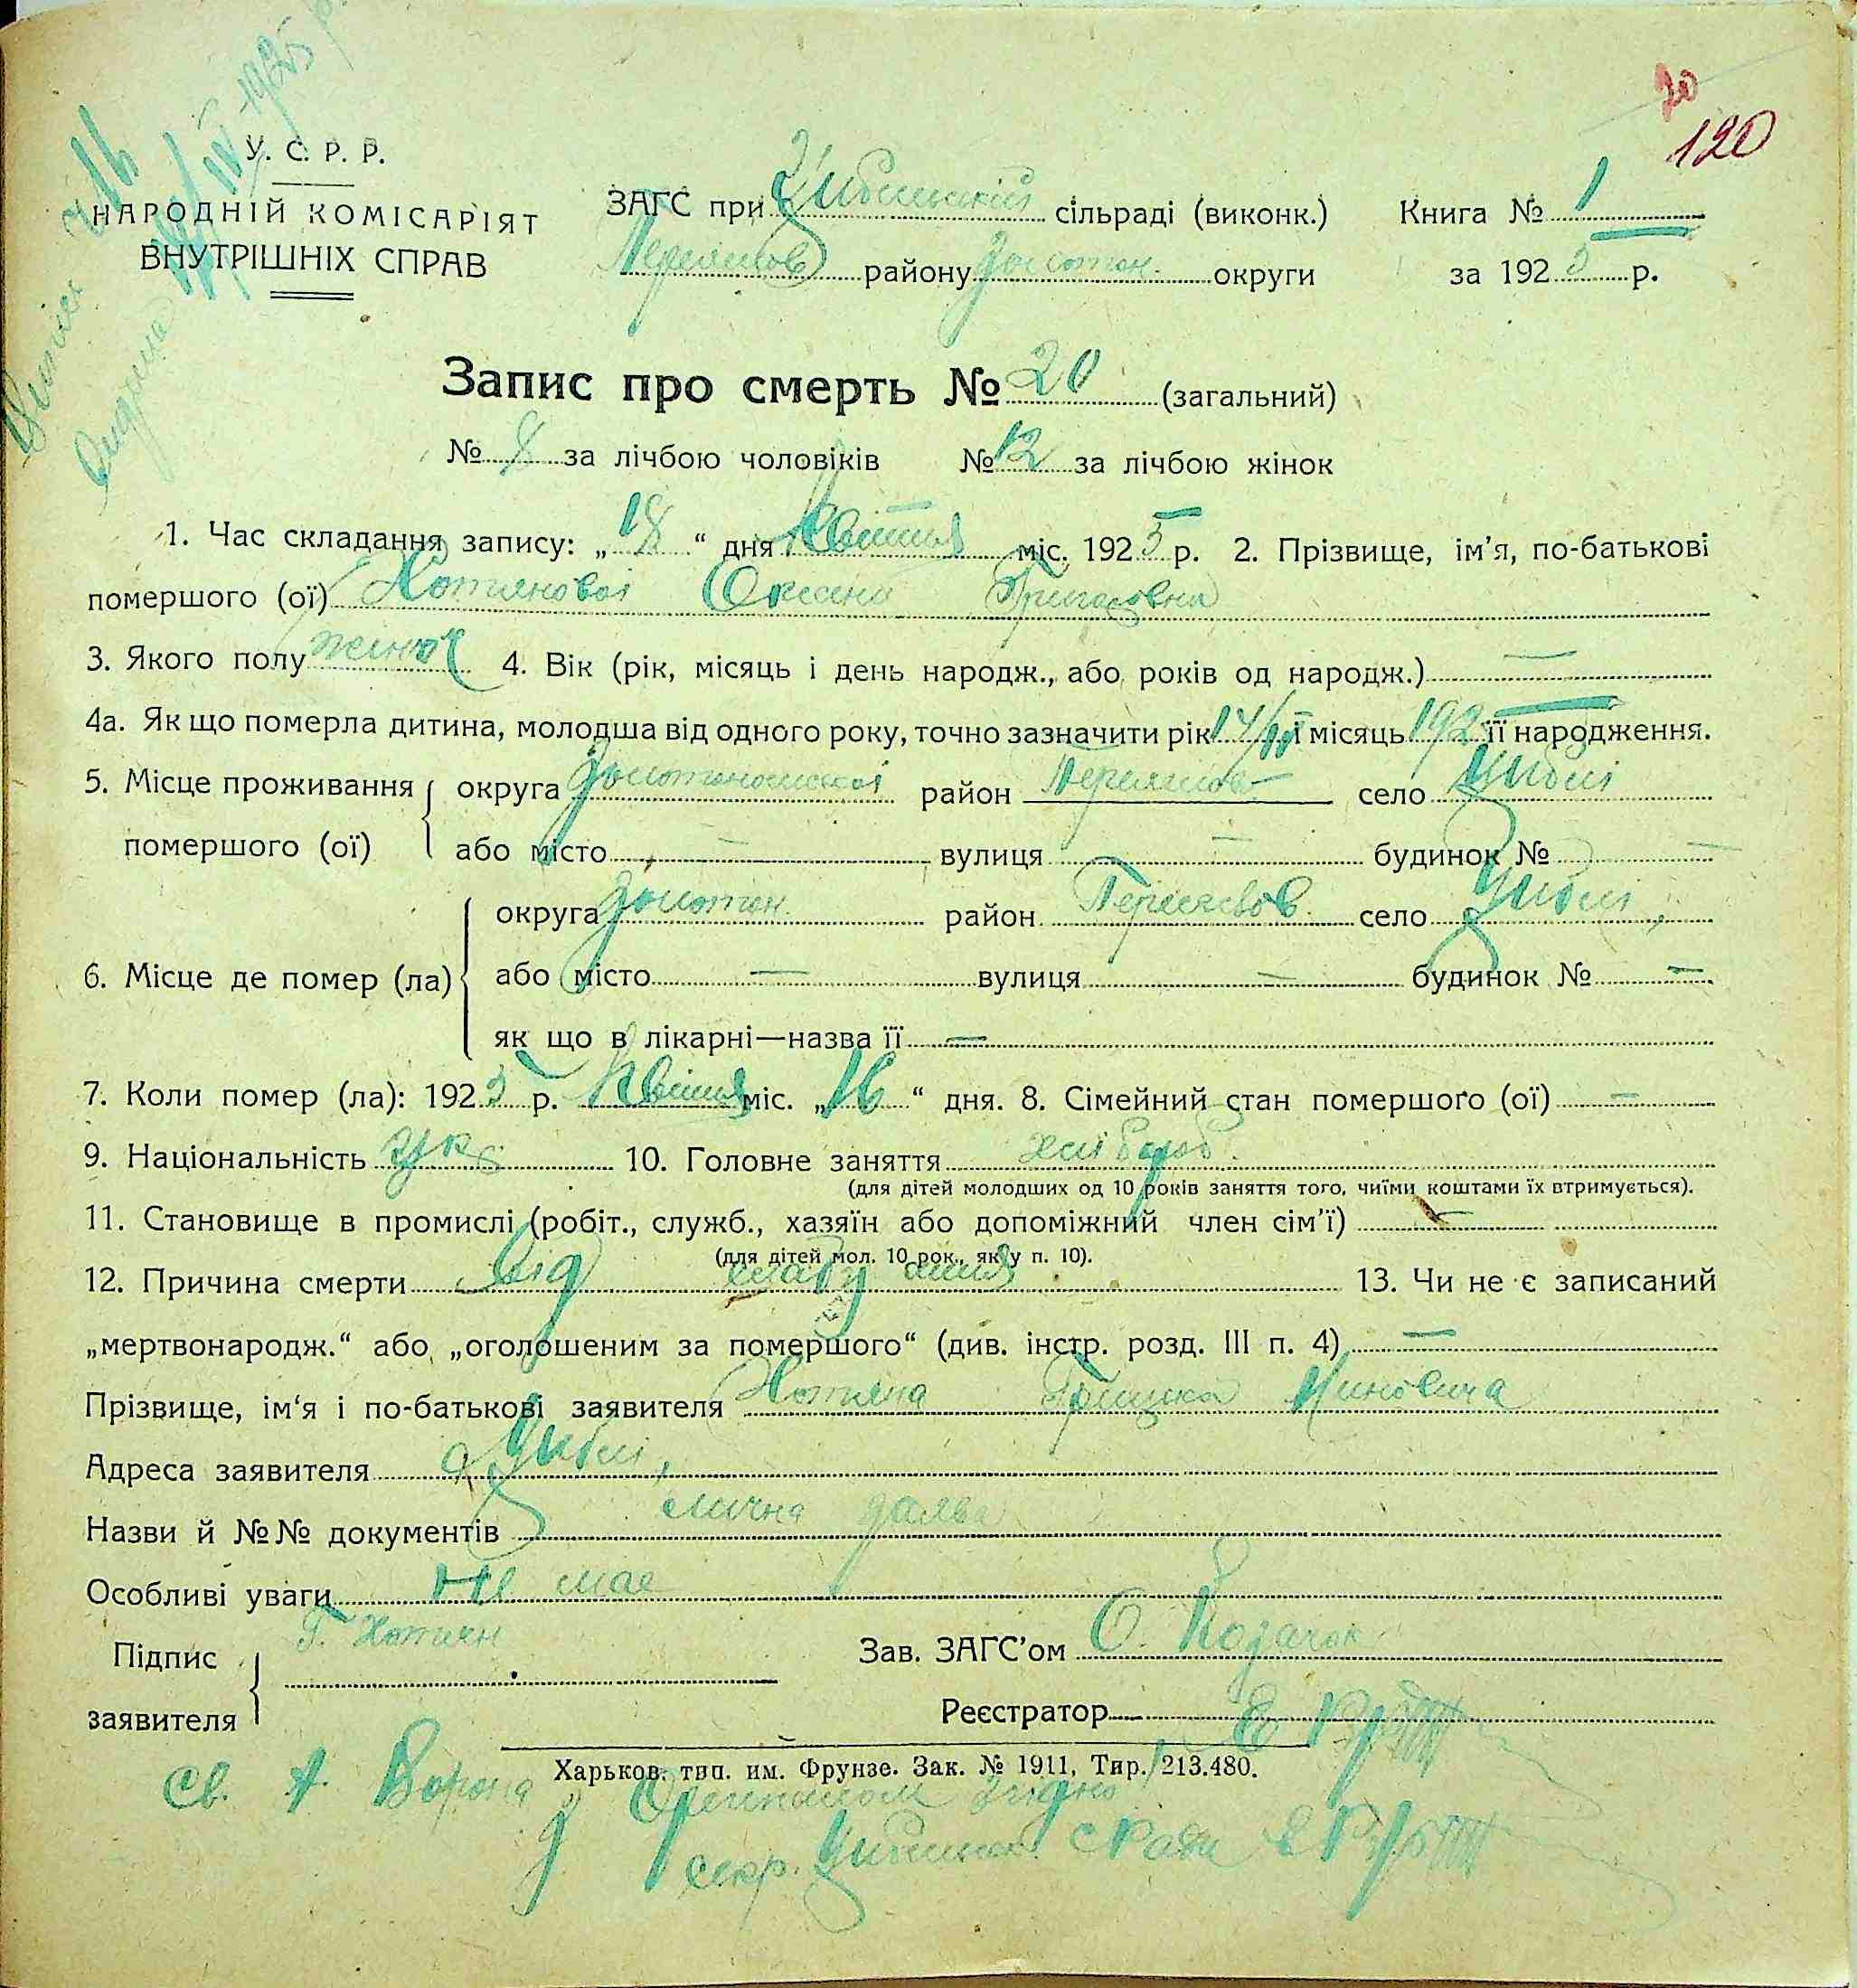 20
120
У. С. Р. Р.
НАРОДНІЙ КОМІСАРІЯТ
ВНУТРІШНІХ СПРАВ
ЗАГС при Цибельській сільраді (виконк.) Книга № 1
Переяслов району Золотон. округи за 1925 р.
Запис про смерть № 20 (загальний)
№ 8 за лічбою чоловіків № 12 за лічбою жінок
1. Час складання запису: „18“ дня Квітня міс. 1925 р. 2. Прізвище, ім'я, по-батькові
помершого (ої) Хотянової Оксана Григоровна
3. Якого полу жіноч 4. Вік (рік, місяць і день народж., або років од народж.) —
4а. Як що померла дитина, молодша від одного року, точно зазначити рік 14/ і місяць 1925 її народження.
5. Місце проживання округа Золотоношської район Переяслов село Циблі
помершого (ої) або місто — вулиця — будинок № —
округа Золотон. район Переяслов село Циблі,
6. Місце де помер (ла) або місто — вулиця — будинок № —
як що в лікарні—назва її —
7. Коли помер (ла): 1925 р. Квітня міс. „16“ дня. 8. Сімейний стан помершого (ої) —
9. Національність укр 10. Головне заняття хлібороб.
(для дітей молодших од 10 років заняття того, чиїми коштами їх втримується).
11. Становище в промислі (робіт., служб., хазяїн або допоміжний член сім'ї) —
(для дітей мол. 10 рок., як у п. 10).
12. Причина смерти від 13. Чи не є записаний
„мертвонародж.“ або „оголошеним за помершого“ (див. інстр. розд. III п. 4) —
Прізвище, ім'я і по-батькові заявителя Хотяна Грицька Миновича
Адреса заявителя с Циблі,
Назви й №№ документів лична заява
Особливі уваги не має
Підпис Г. Хотян Зав. ЗАГС'ом О. Козачок
заявителя Реєстратор Е
Харьков. тип. им. Фрунзе. Зак. № 1911, Тир. 213.480.
Св. А. Ворона З Оригіналом згідно
секр. Цибельськ. с Ради Е